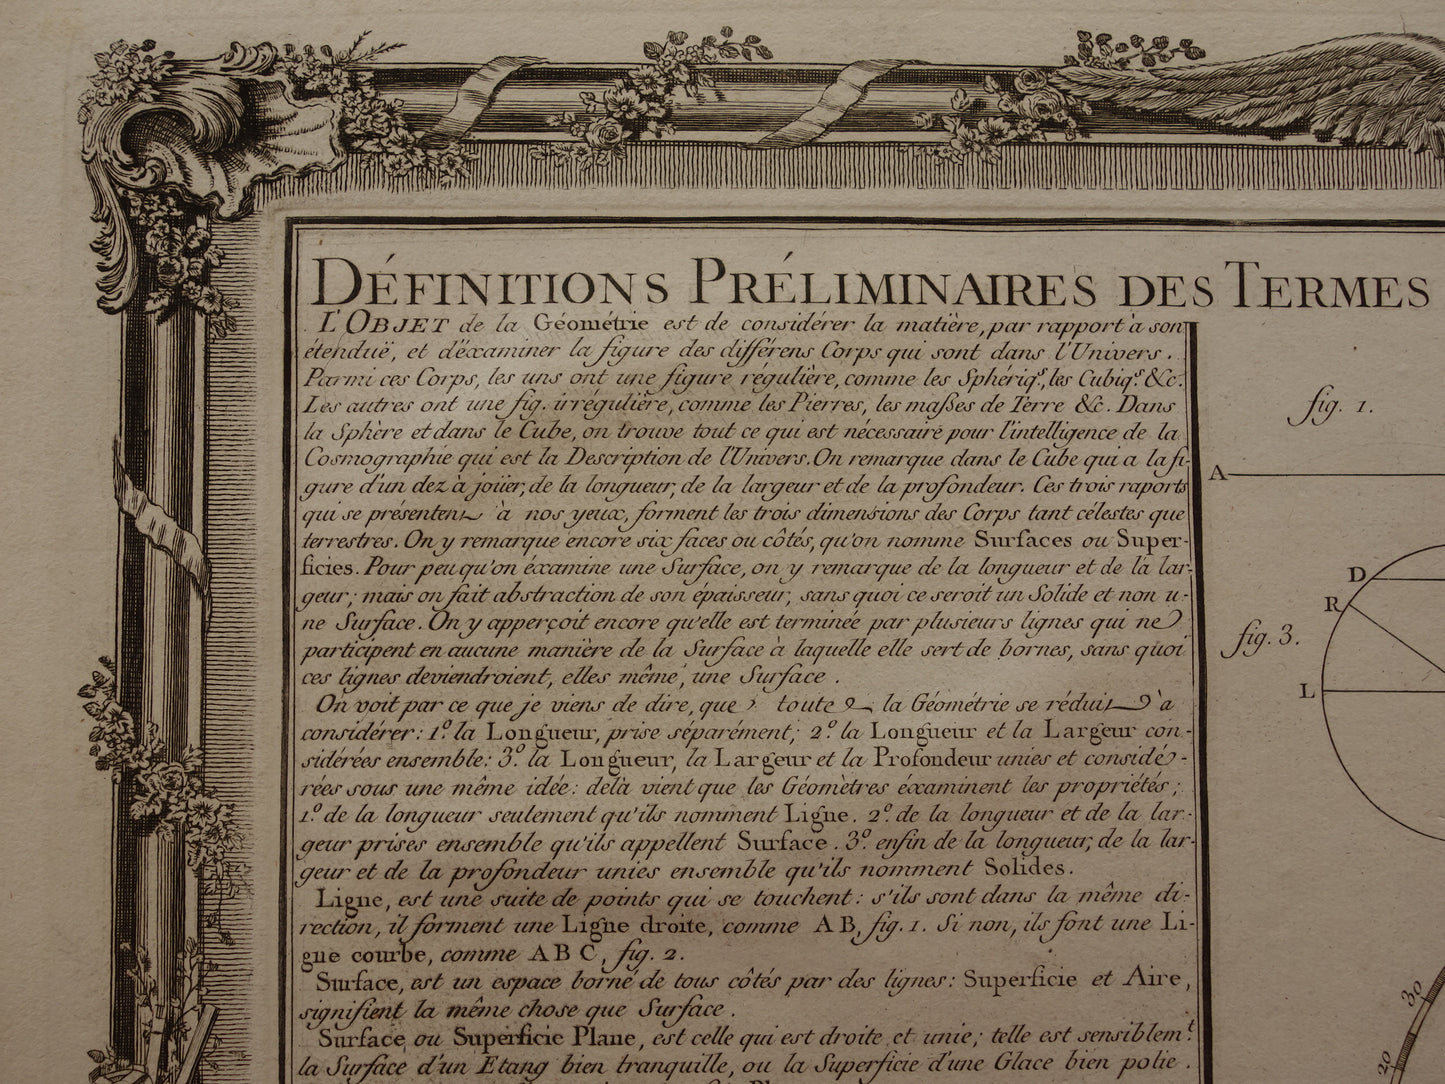 DÉFINITIONS PRÉLIMINAIRES DES TERMES
L'OBJET de la Géométrie est de considérer la matière, par rapport à son
étenduë, et d'éxaminer la figure des différens Corps qui sont dans l'Univers.
Parmi ces Corps, les uns ont une figure régulière, comme les Sphériq.s, les Cubiq.s &c.
Les autres ont une fig. irrégulière, comme les Pierres, les masses de Terre &c. Dans
la Sphère et dans le Cube, on trouve tout ce qui est nécessaire pour l'intelligence de la
Cosmographie qui est la Description de l'Univers. On remarque dans le Cube qui a la fi-
gure d'un dez à joüer, de la longueur, de la largeur et de la profondeur. Ces trois raports
qui se présentent à nos yeux, forment les trois dimensions des Corps tant célestes que
terrestres. On y remarque encore six faces ou côtés, qu'on nomme Surfaces ou Super-
ficies. Pour peu qu'on éxamine une Surface, on y remarque de la longueur et de la lar-
geur; mais on fait abstraction de son épaisseur, sans quoi ce seroit un Solide et non u-
ne Surface. On y apperçoit encore qu'elle est terminée par plusieurs lignes qui ne
participent en aucune manière de la Surface à laquelle elle sert de bornes, sans quoi
ces lignes deviendroient, elles même, une Surface.
On voit par ce que je viens de dire, que toute la Géométrie se réduit à
considérer: 1.º la Longueur, prise séparément; 2.º la Longueur et la Largeur con-
sidérées ensemble: 3.º la Longueur, la Largeur et la Profondeur unies et considé-
rées sous une même idée: délà vient que les Géomètres éxaminent les propriétés;
1.º de la longueur seulement qu'ils nomment Ligne. 2.º de la longueur et de la lar-
geur prises ensemble qu'ils appellent Surface. 3.º enfin de la longueur, de la lar-
geur et de la profondeur unies ensemble qu'ils nomment Solides.
Ligne, est une suite de points qui se touchent: s'ils sont dans la même di-
rection, il forment une Ligne droite, comme AB, fig. 1. Si non, ils font une Li-
gne courbe, comme ABC, fig. 2.
Surface, est un espace borné de tous côtés par des lignes: Superficie et Aire,
signifient la même chose que Surface.
Surface ou Superficie Plane, est celle qui est droite et unie; telle est sensiblem.t
la Surface d'un Etang bien tranquille, ou la Superficie d'une Glace bien polie.
fig. 1.
A
D
R
fig. 3.
L
30
20